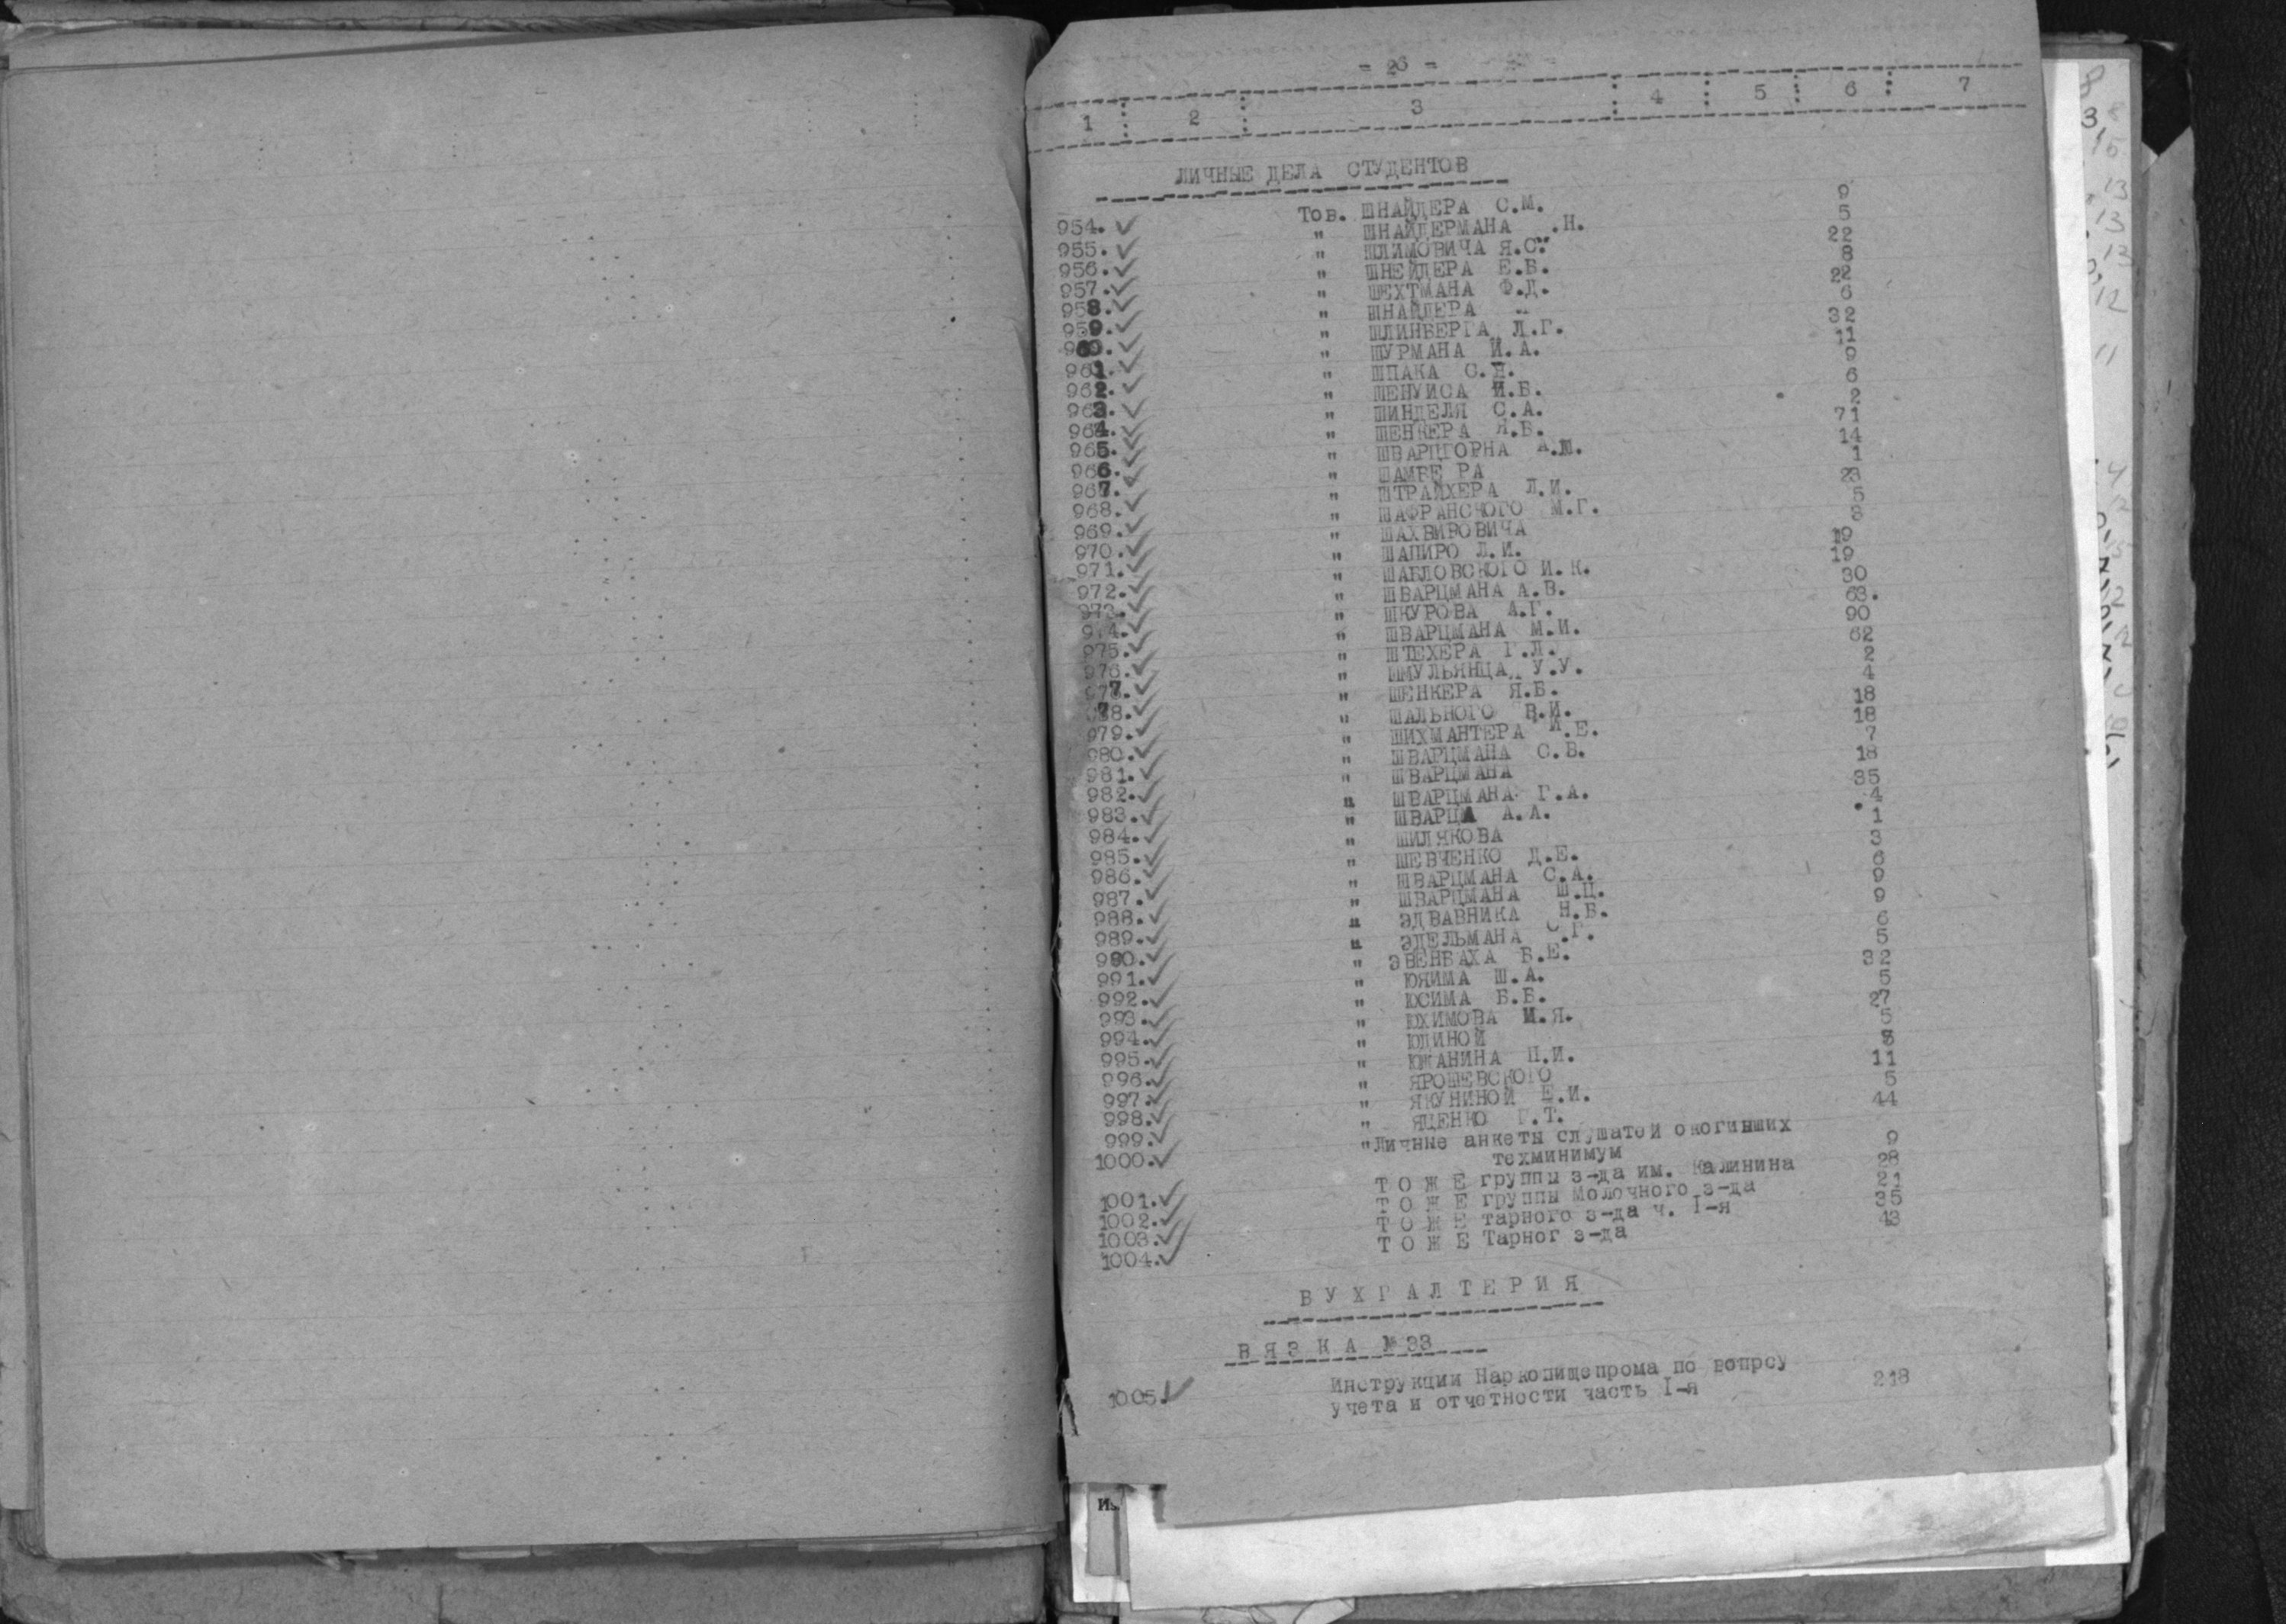 - 26 -
1 : 2 : 3 : 4 : 5 : 6 : 7
ЛИЧНЫЕ ДЕЛА СТУДЕНТОВ
954. Тов. ШНАЙДЕРА С.М. 9
955. " ШНАЙДЕРМАНА .Н. 5
956. " ШЛИМОВИЧА Я.С. 22
957. " ШНЕЙДЕРА Е.Б. 8
958. " ШЕХТМАНА Ф.Д. 22
959. " ШНАЙДЕРА 6
960. " ШЛИНБЕРГА Л.Г. 32
961. " ШУРМАНА И.А. 11
962. " ШПАКА С.Н. 9
963. " ШЕНУИСА И.Б. 6
964. " ШИНДЕЛЯ С.А. 2
965. " ШЕНКЕРА Я.Б. 71
966. " ШВАРЦГОРНА А.Ш. 14
967. " ШАМБЕ РА 1
968. " ШТРАЙХЕРА Л.И. 23
969. " ШАФРАНСКОГО М.Г. 5
970. " ШАХВИРОВИЧА 8
971. " ШАПИРО Л.И. 19
972. " ШАБЛОВСКОГО И.К. 19
973. " ШВАРЦМАНА А.В. 30
974. " ШКУРОВА А.Г. 63.
975. " ШВАРЦМАНА М.И. 90
976. " ШТЕХЕРА Г.Л. 62
977. " ШМУЛЬЯНЦА У.У. 2
978. " ШЕНКЕРА Я.Б. 4
979. " ШАЛЬНОГО В.И. 18
980. " ШИХМАНТЕРА И.Е. 18
981. " ШВАРЦМАНА С.В. 7
982. " ШВАРЦМАНА 18
983. " ШВАРЦМАНА Г.А. 35
984. " ШВАРЦА А.А. 4
985. " ШИЛЯКОВА 1
986. " ШЕВЧЕНКО Д.Е. 3
987. " ШВАРЦМАНА С.А. 6
988. " ШВАРЦМАНА Ш.Ц. 9
989. " ЭДВАВНИКА Н.Б. 9
990. " ЭДЕЛЬМАНА С.Г. 6
991. " ЭВЕНБАХА Б.Е. 5
992. " ЮЯИМА Ш.А. 32
993. " ЮСИМА Б.Б. 5
994. " ЮХИМОВА И.Я. 27
995. " ЮДИНОЙ 5
996. " ЮЖАНИНА П.И. 8
997. " ЯРОШЕВСКОГО 11
998. " ЯКУНИНОЙ Е.И. 5
999. " ЯЦЕНКО Г.Т. 44
1000. "Личные анкеты слушатей окогинших
техминимум 9
1001. Т О Ж Е группы з-да им. Калинина 28
1002. Т О Ж Е группы Молочного з-да 21
1003. Т О Ж Е тарного з-да ч. I-я 35
1004. Т О Ж Е Тарног з-да 43
Б У Х Г А Л Т Е Р И Я
В Я З К А № 33
1005. Инструкции Наркопищепрома по вопрсу 218
учета и отчетности часть I-я